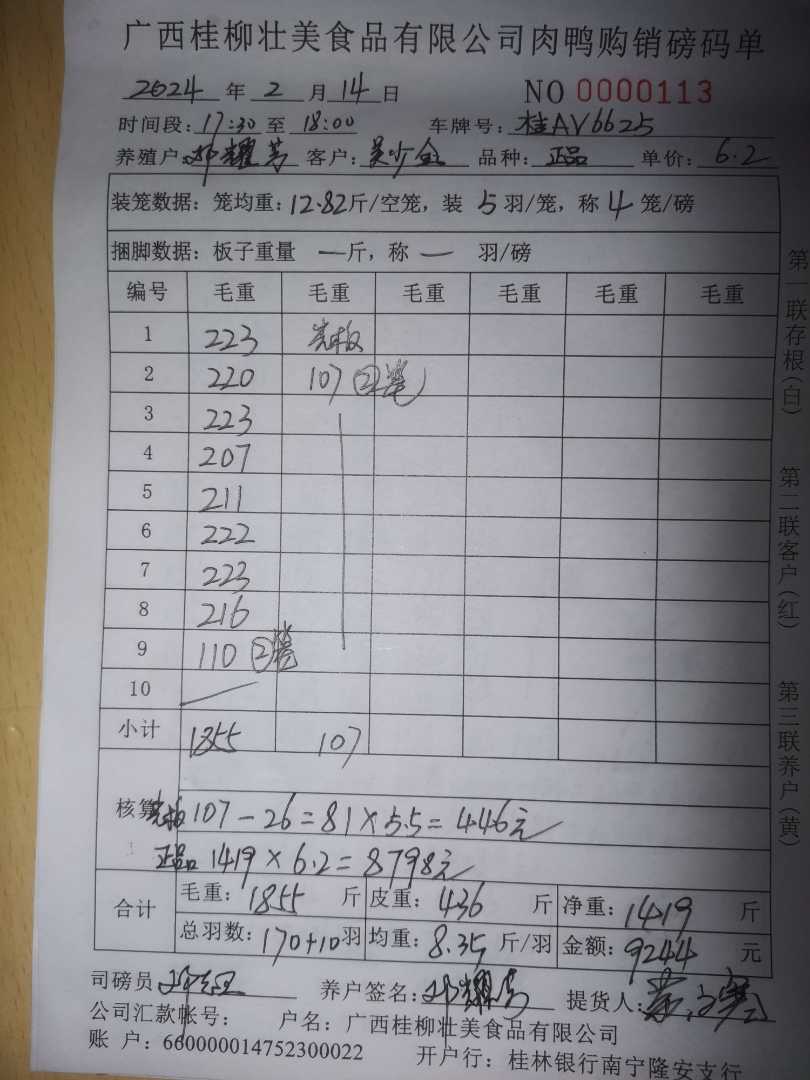 广西桂柳壮美食品有限公司肉鸭购销磅码单
2024 年 2 月 14 日 NO 0000113
时间段: 17:30 至 18:00 车牌号: 桂AV6625
养殖户: 邓耀芳 客户: 吴少金 品种: 正品 单价: 6.2
装笼数据: 笼均重: 12.82斤/空笼, 装 5 羽/笼, 称 4 笼/磅
捆脚数据: 板子重量 一斤, 称 一 羽/磅
编号 毛重 毛重 毛重 毛重 毛重 毛重
1 223 壳板
2 220 107 ②笼
3 223
4 207
5 211
6 222
7 223
8 216
9 110 ②笼
10
小计 1855 107
核算
壳板 107-26=81×5.5=446元
正品 1419×6.2=8798元
合计 毛重: 1855 斤 皮重: 436 斤 净重: 1419 斤
总羽数: 170+10羽 均重: 8.35 斤/羽 金额: 9244 元
司磅员 养户签名: 邓耀芳 提货人:
公司汇款帐号: 户名: 广西桂柳壮美食品有限公司
账 户: 660000014752300022 开户行: 桂林银行南宁隆安支行
第一联存根(白) 第二联客户(红) 第三联养户(黄)